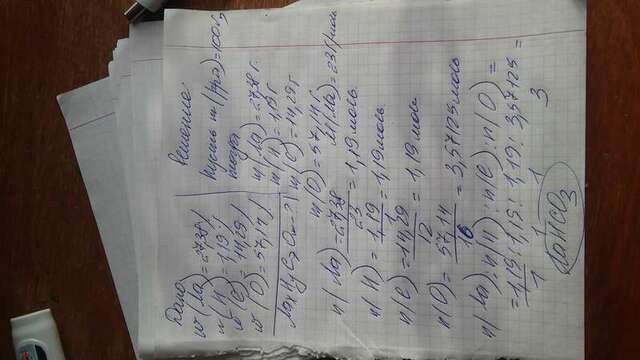 Дано:
w(Na)=27,38%
w(H)=1,19%
w(C)=14,29%
w(O)=57,14%
NaxHyCzOn-?
Решение:
Пусть m(р-ра)=100г,
тогда
m(Na)=27,38г.
m(H)=1,19г
m(C)=14,29г.
m(O)=57,14г.
M(Na)=23г/моль
n(Na)=27,38/23=1,19моль.
n(H)=1,19/1=1,19моль
n(C)=14,29/12=1,19моль
n(O)=57,14/16=3,57125моль
n(Na):n(H):n(C):n(O)=
=1,19:1,19:1,19:3,57125=
1 1 1 3
NaHCO3